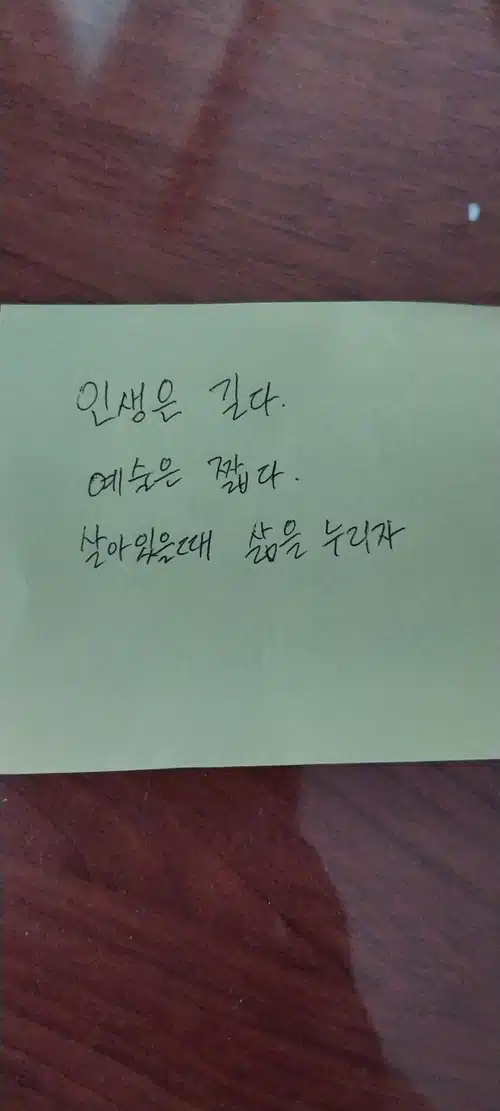 인생은 길다.
예술은 짧다.
살아있을때 삶을 누리자